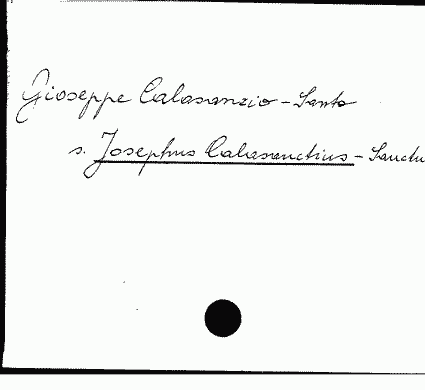 Gioseppe Calasanzio - Santo
s. Josephus Calasanctius - Sanctu